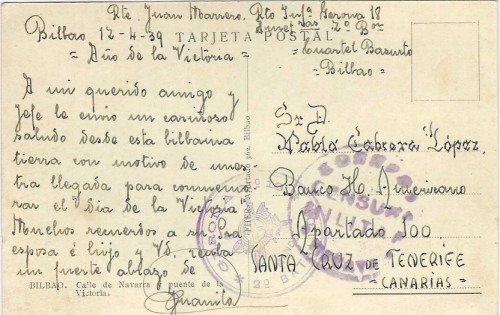 Rte. Juan Marrero. Rto Infª Gerona 18
2º Bon
Bilbao 12-4-39
TARJETA POSTAL
Cuartel Basurto
= Bilbao =
= Año de la Victoria =
A mi querido amigo y
Jefe le envio un cariñoso
saludo desde esta bilbaina
tierra con motivo de nues-
tra llegada para conmemo
rar el Dia de la Victoria
Muchos recuerdos a su
esposa é hijo y Vd. reciba
un fuerte abrazo de
Juanito
BILBAO. Calle de Navarra puente de la
Victoria.
Sr D.
Pablo Cabrera López.
Banco H. Americano
Apartado 100.
SANTA CRUZ DE TENERIFE
= CANARIAS =
CENSURA
MILITAR